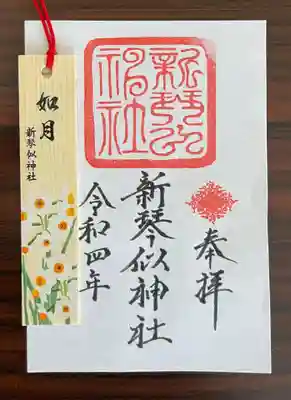 奉拝
新琴似神社
令和四年
新琴似神社
如月
新琴似神社